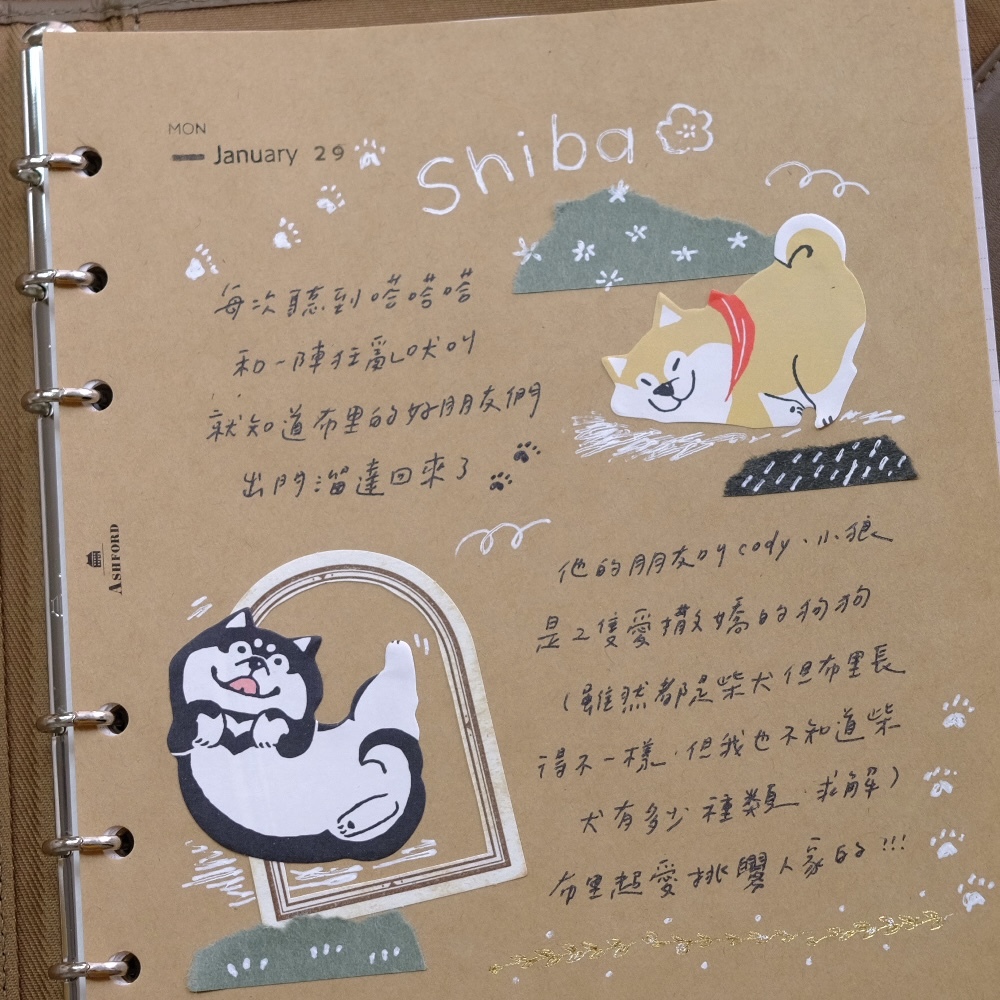 MON
January 29
Shiba
每次聽到嗒嗒嗒
和一陣狂亂吠叫
就知道布里的好朋友們
出門溜達回來了
ASHFORD
他的朋友叫cody、小狼
是2隻愛撒嬌的狗狗
(雖然都是柴犬但布里長
得不一樣,但我也不知道柴
犬有多少種類,求解)
布里超愛挑釁人家的!!!